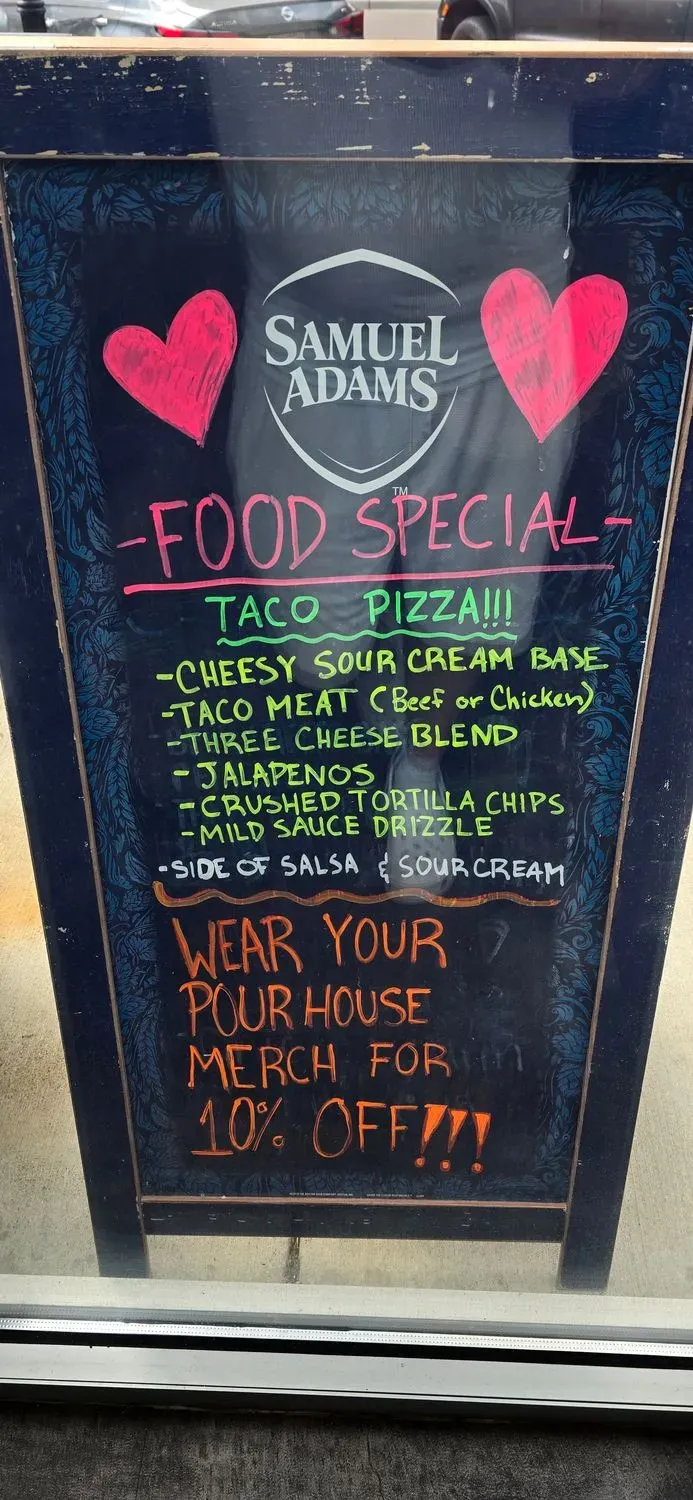 SAMUEL
ADAMS
TM
-FOOD SPECIAL-
TACO PIZZA!!!
-CHEESY SOUR CREAM BASE
-TACO MEAT (Beef or Chicken)
-THREE CHEESE BLEND
-JALAPENOS
-CRUSHED TORTILLA CHIPS
-MILD SAUCE DRIZZLE
-SIDE OF SALSA & SOUR CREAM
WEAR YOUR
POUR HOUSE
MERCH FOR
10% OFF!!!